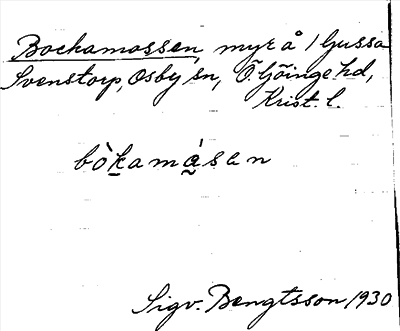 Bockamossen, myr å 1 Gussa
Svenstorp, Osby sn, Ö. Göinge hd,
Krist. l.
bòkamása̰n
Sigv. Bengtsson 1930